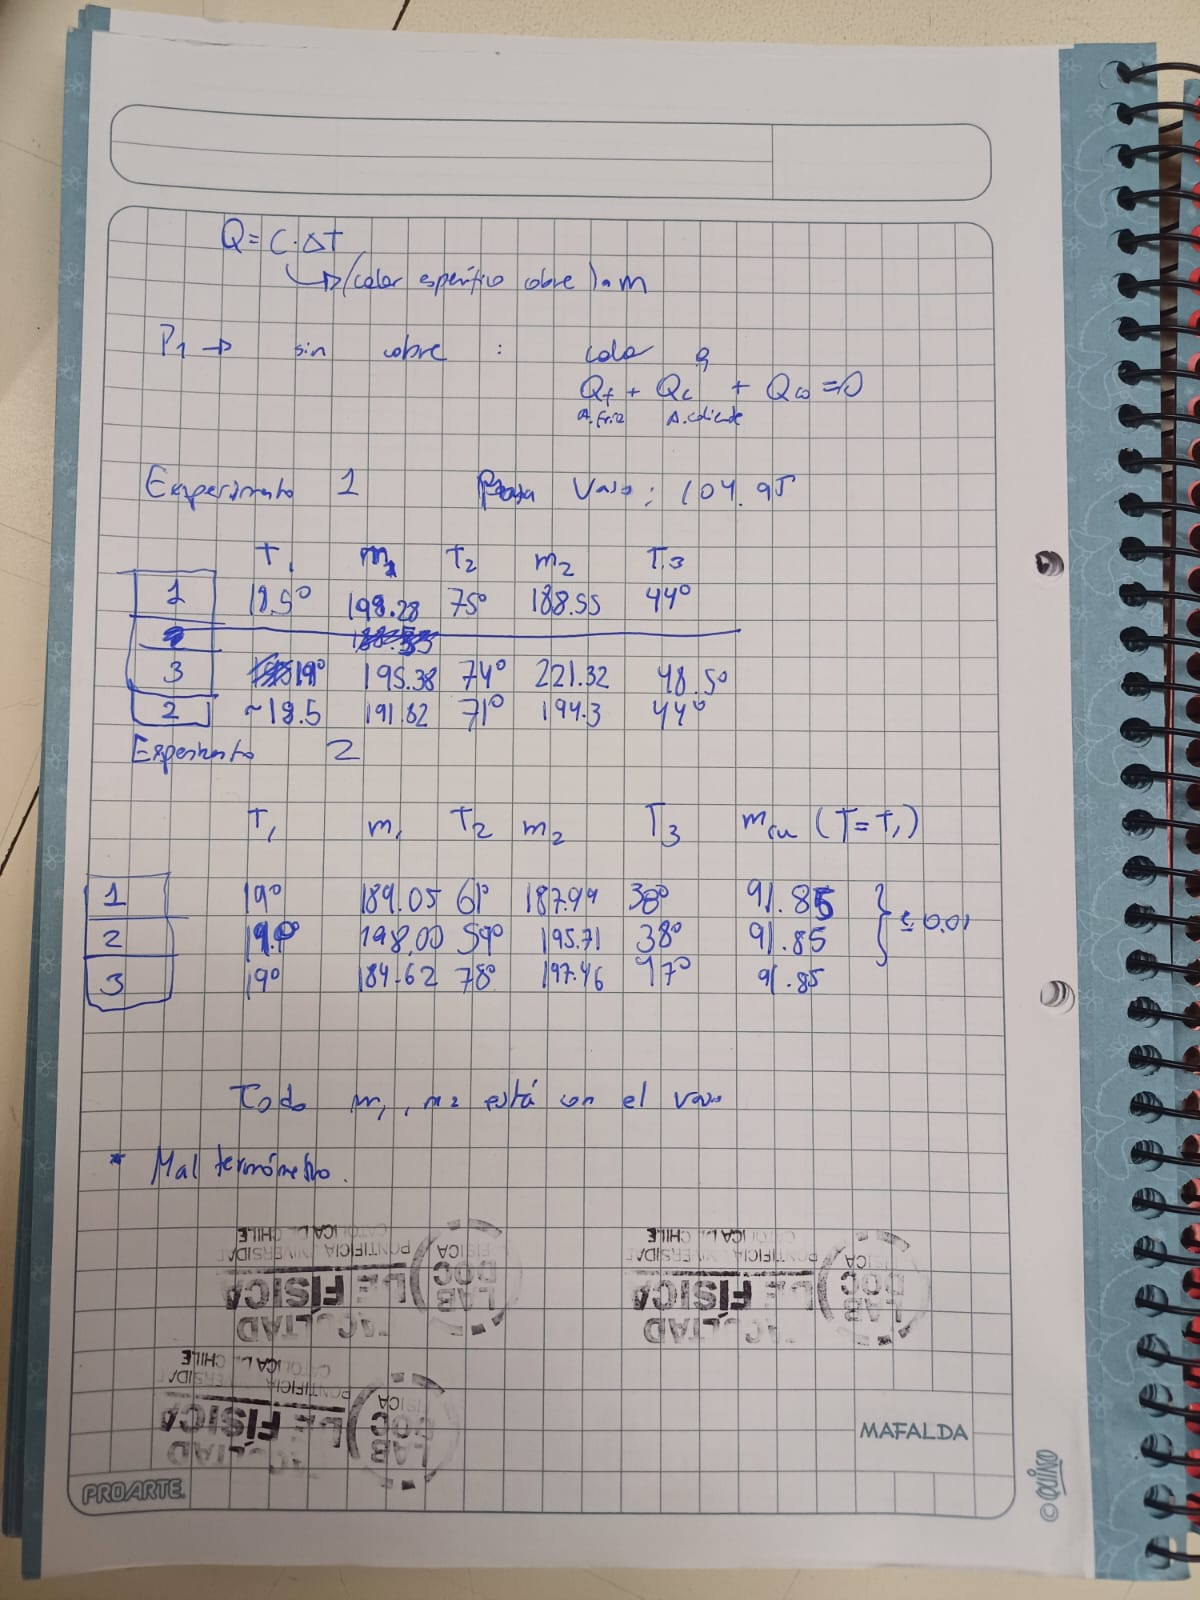 Q = C · ΔT
(calor específico cobre) · m
P1 → sin cobre :
Qf + Qc + Qco = 0
A. fría A. caliente
Experimento 1 Vaso : 104.95
T1 m1 T2 m2 T3
1 18.5° 198.28 75° 188.55 44°
3 19° 195.38 74° 221.32 48.5°
2 ~18.5 191.82 71° 194.3 44°
Experimento 2
T1 m1 T2 m2 T3 mcu (T=T1)
1 19° 189.05 61° 187.99 38° 91.85
2 198,00 59° 195.71 38° 91.85
3 19° 184.62 78° 197.46 47° 91.85
Todo m1, m2 está con el vaso
* Mal termómetro.
FACULTAD
DE FÍSICA
PONTIFICIA UNIVERSIDAD
CATOLICA DE CHILE
LAB
DOC
FÍSICA
FACULTAD
DE FÍSICA
PONTIFICIA UNIVERSIDAD
CATOLICA DE CHILE
LAB
DOC
FÍSICA
FACULTAD
DE FÍSICA
PONTIFICIA UNIVERSIDAD
CATOLICA DE CHILE
LAB
DOC
FÍSICA
MAFALDA
PROARTE
© QUINO